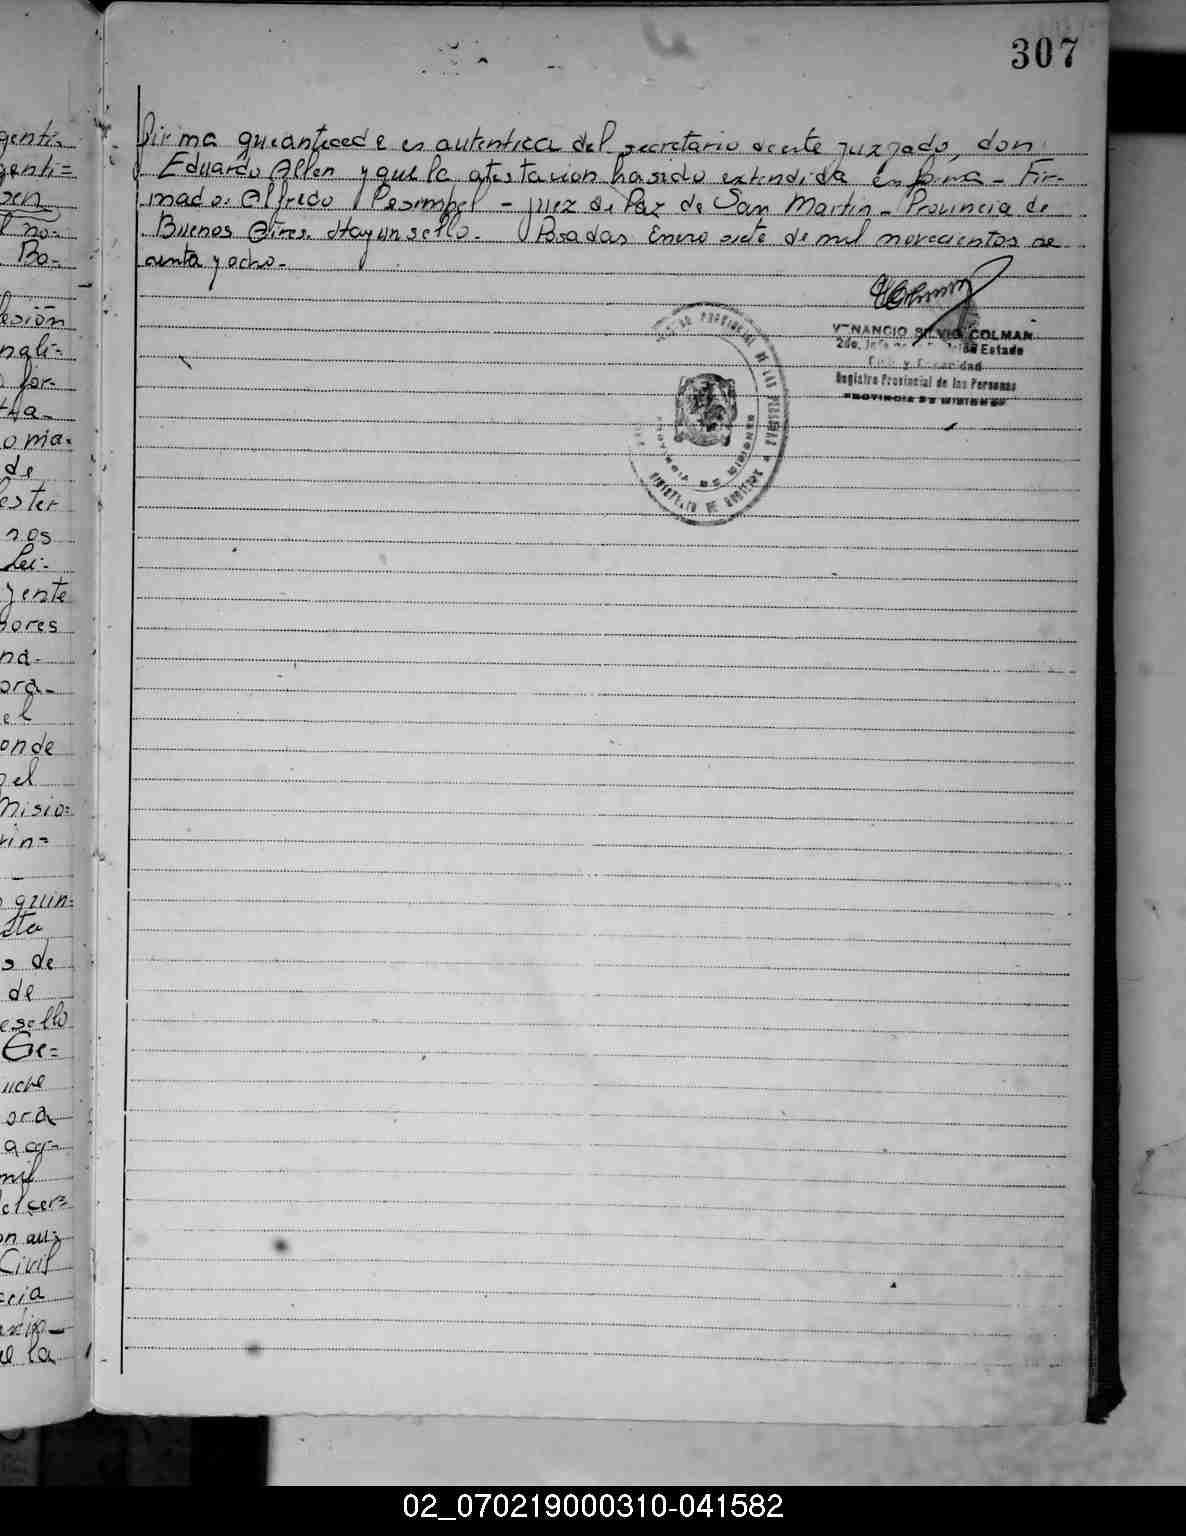 307
firma que antecede es autentica del secretario de este juzgado, don
Eduardo Allen y que la atestacion ha sido extendida en forma - Fir-
mado: Alfredo - Juez de Paz de San Martin - Provincia de
Buenos Aires. Hay un sello. Posadas Enero siete de mil novecientos se
senta y ocho.-
VENANCIO SILVIO COLMAN
2do. Jefe Estado
Civil y Capacidad
Registro Provincial de las Personas
PROVINCIA DE MISIONES
REGISTRO PROVINCIAL DE LAS PERSONAS
MINISTERIO DE GOBIERNO
PROVINCIA DE MISIONES
genti-
genti=
sen
l no-
Bo-
lesión
nali-
for-
tra-
o ma-
de
ester
nos
Lei-
gente
sores
na-
ora-
el
onde
el
Misio=
tin=
quin=
sta
s de
de
esello
Ge=
uche
ora
a cer-
mil
el cer=
on au=
Civil
cia
el la
02_070219000310-041582